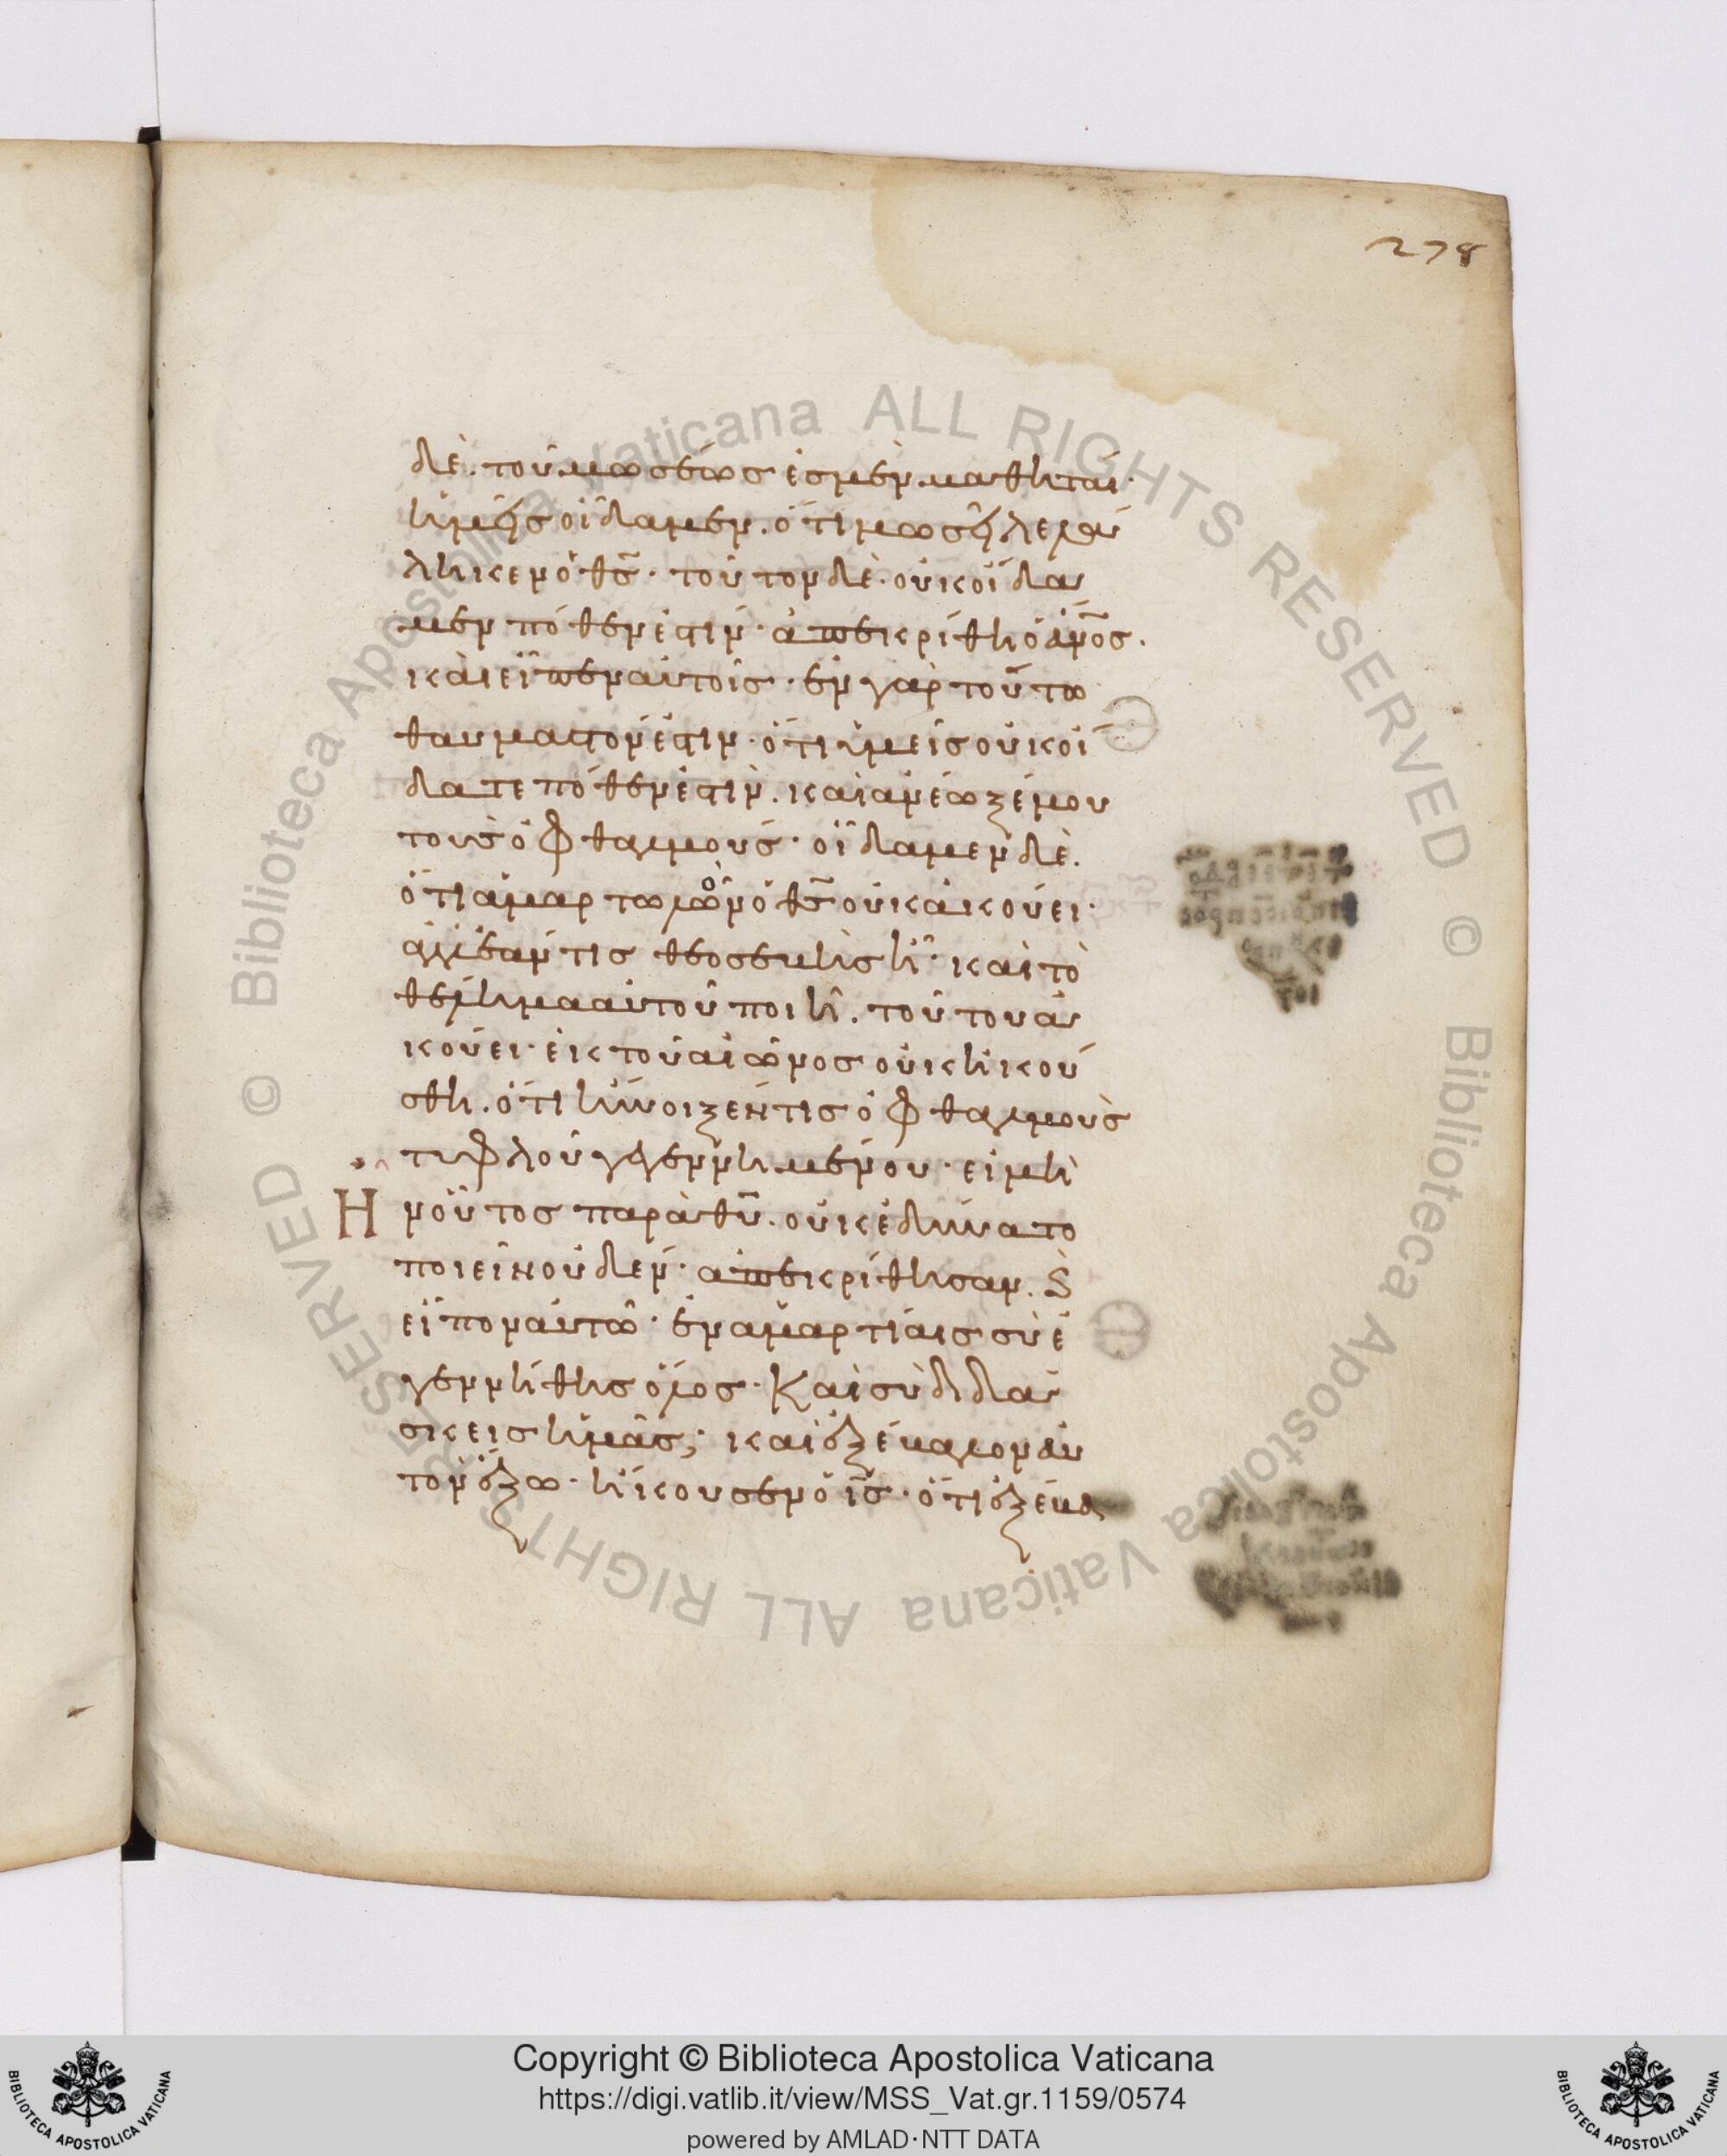 278
δὲ. τοῦ μωσέως ἐσμὲν μαθηταί·
ἡμεῖς οἴδαμεν. ὅτι μωσῆ λελά
ληκεν ὁ θς̄· τοῦτον δὲ. οὐκ οἴδα
μεν πόθεν ἐστίν· ἀπεκρίθη ὁ ἄνο̄ς.
καὶ εἶπεν αὐτοῖς· ἐν γὰρ τούτω
θαυμαστόν ἐστιν. ὅτι ὑμεῖς οὐκ οἴ
δατε πόθεν ἐστὶν. καὶ ἀνέωξέ μου
τοὺς ὀφθαλμούς· οἴδαμεν δὲ.
ὅτι ἁμαρτωλῶν ὁ θς̄ οὐκ ἀκούει·
ἀλλ' ἐάν τις θεοσεβὴς ἦ· καὶ τὸ
θέλημα αὐτοῦ ποιῆ. τούτου ἀ
κούει· ἐκ τοῦ αἰῶνος οὐκ ἠκού
σθη. ὅτι ἤνοιξέν τις ὀφθαλμοὺς
τυφλοῦ γεγεννημένου· εἰ μὴ
Η νοὗτος παρὰ θῦ. οὐκ ἐδύνατο
ποιεῖν οὐδέν· ἀπεκρίθησαν. ϛ
εἶπον αὐτῶ· ἐν ἁμαρτίαις σὺ ἐ
γεννήθης ὅλος· Καὶ σὺ διδά
σκεις ἡμᾶς; καὶ ἐξέβαλον αὐ
τὸν ἔξω· ἤκουσεν ὁ ις̄. ὅτι ἐξέβα
Copyright © Biblioteca Apostolica Vaticana
https://digi.vatlib.it/view/MSS_Vat.gr.1159/0574
powered by AMLAD·NTT DATA
BIBLIOTECA APOSTOLICA VATICANA
BIBLIOTECA APOSTOLICA VATICANA
© Biblioteca Apostolica Vaticana ALL RIGHTS RESERVED
© Biblioteca Apostolica Vaticana ALL RIGHTS RESERVED